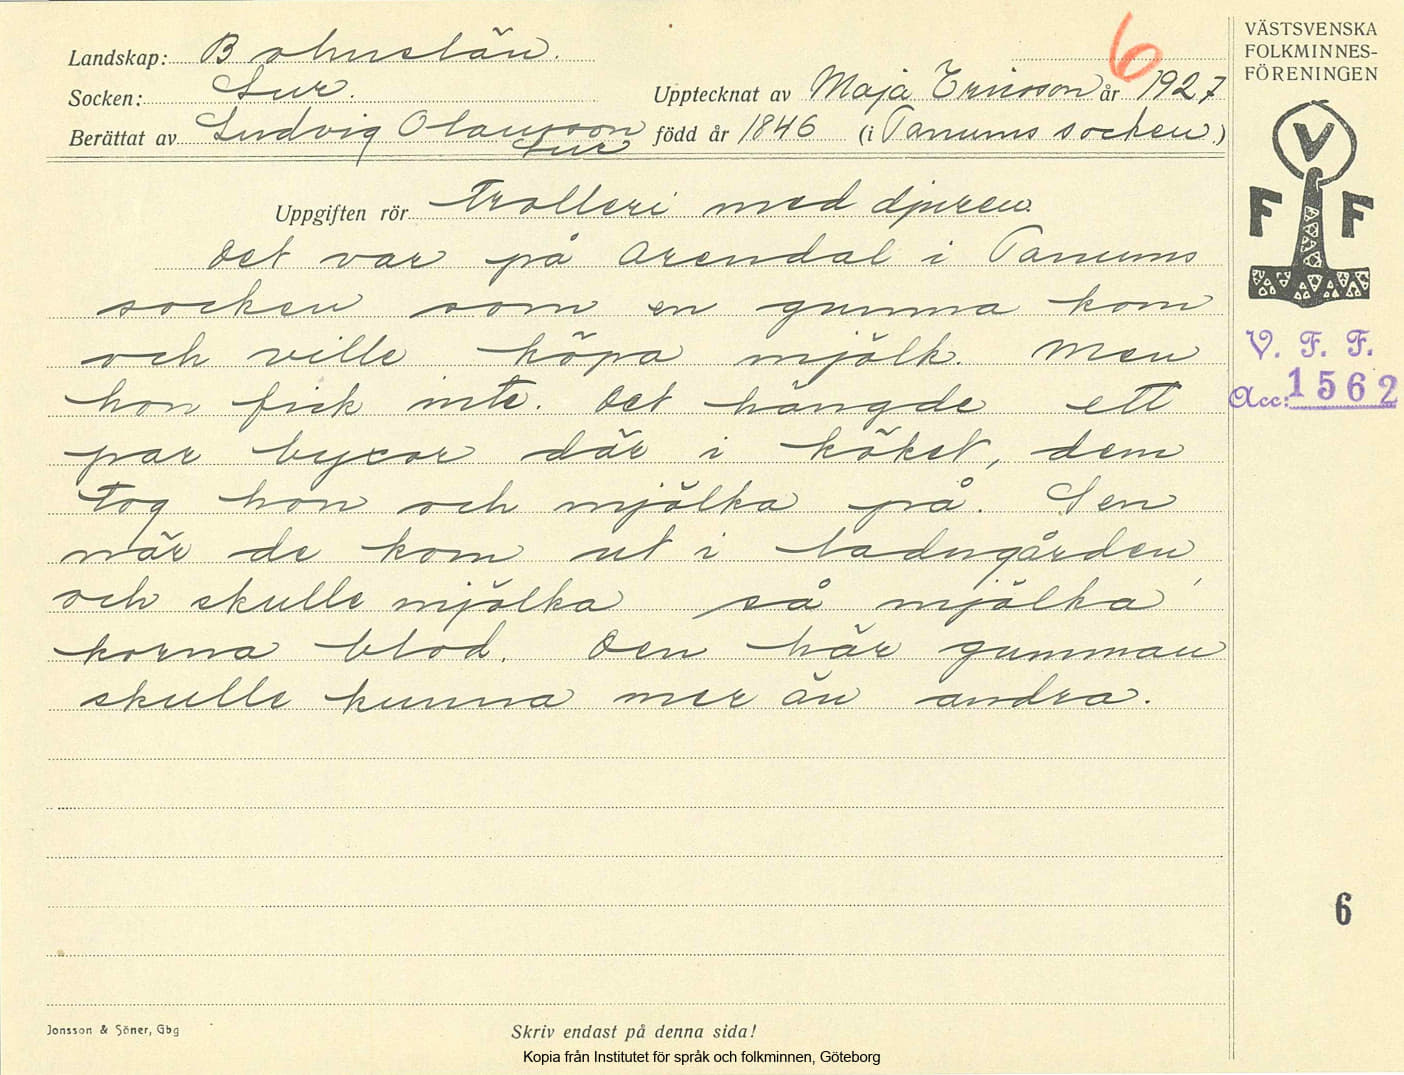 Landskap: Bohuslän.
Socken: Lur.
Berättat av Ludvig Olausson
Lur
6
Upptecknat av Maja Ericsson år 1927
född år 1846 (i Tanums socken.)
Uppgiften rör Trolleri med djuren.
Det var på Arendal i Tanums
socken som en gumma kom
och ville köpa mjölk. Men
hon fick inte. Det hängde ett
par byxor där i köket, dem
tog hon och mjölka på. Sen
när de kom ut i ladugården,
och skulle mjölka så mjölka
korna blod. Den här gumman
skulle kunna mer än andra.
VÄSTSVENSKA
FOLKMINNES-
FÖRENINGEN
V
F F
V. F. F.
Acc: 1562
6
Jonsson & Söner, Gbg
Skriv endast på denna sida!
Kopia från Institutet för språk och folkminnen, Göteborg